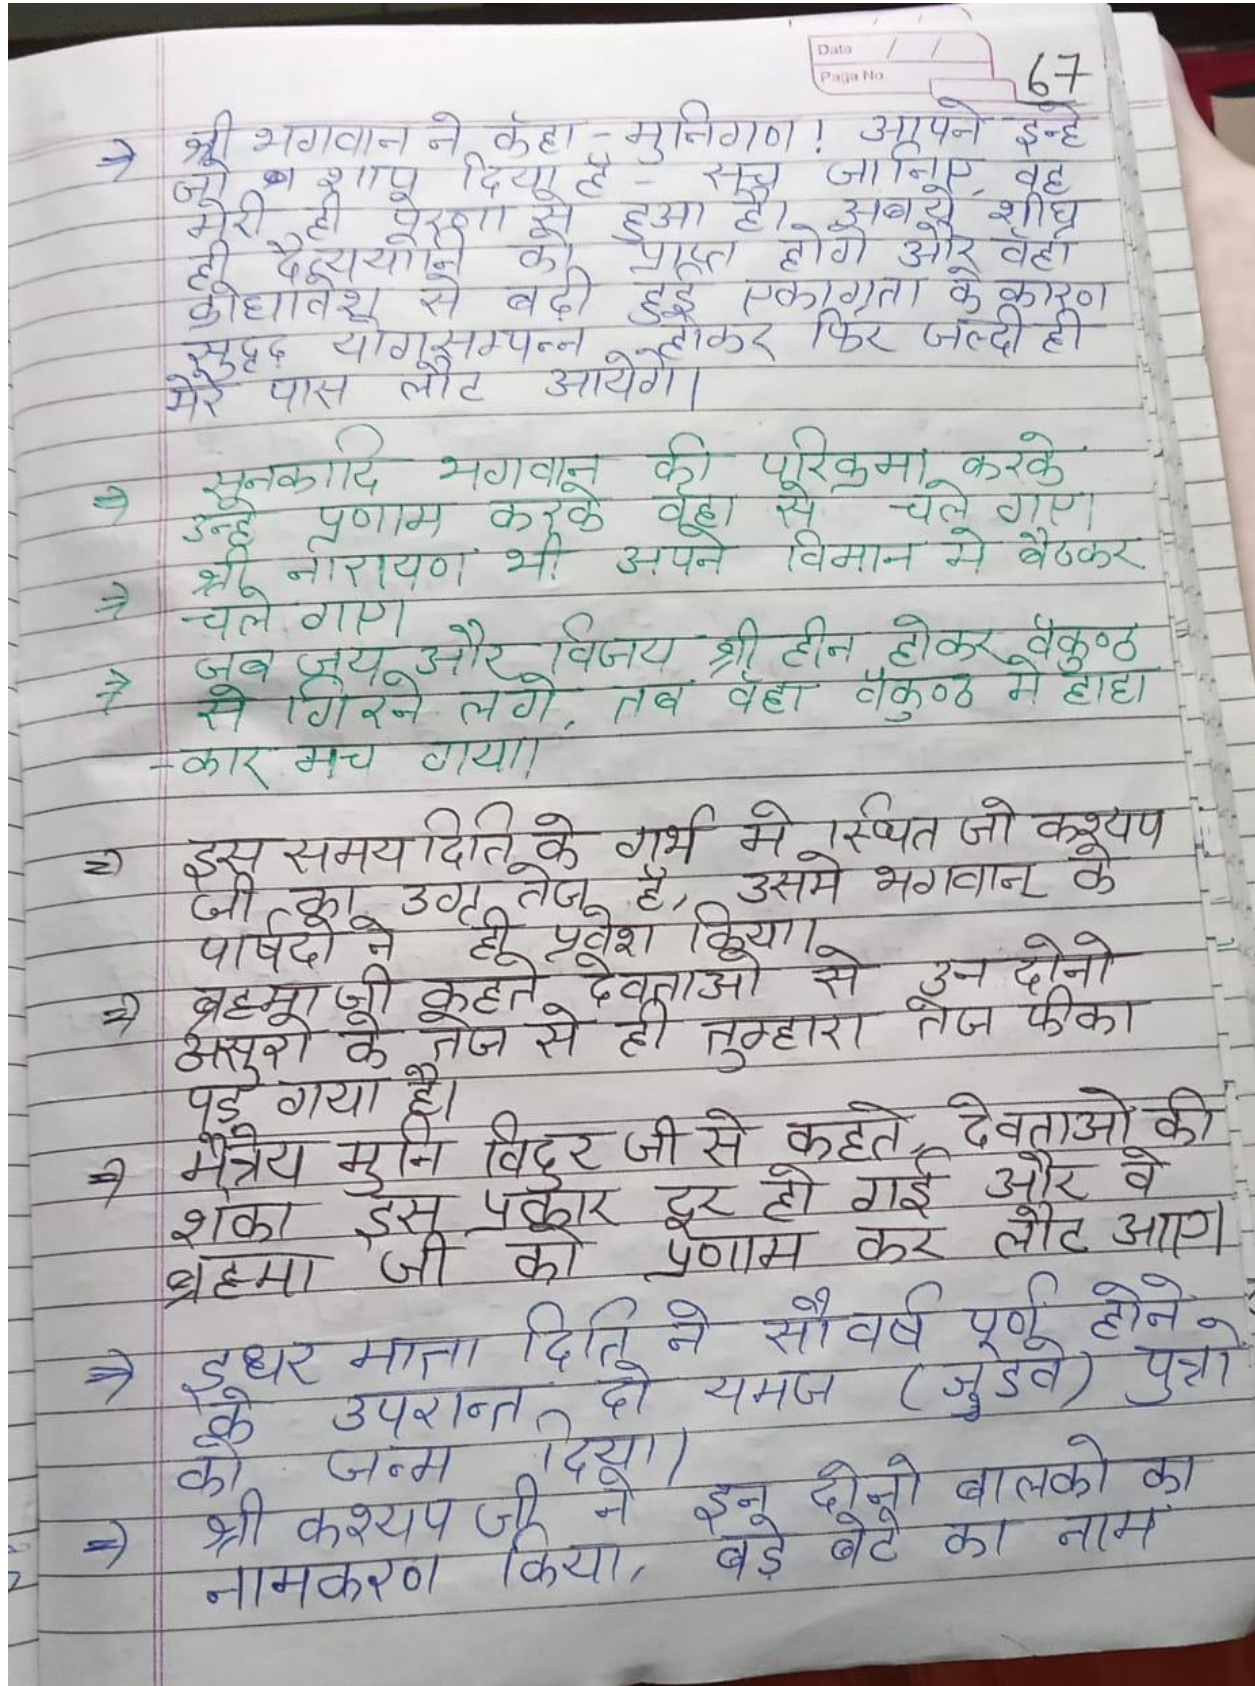 Data / /
Page No.
67
⇒ श्री भगवान ने कहा - मुनिगण! आपने इन्हे
जो शाप दिया है - सच जानिए, वह
मेरी ही प्रेरणा से हुआ है। अब ये शीघ्र
ही दैत्ययोनि को प्राप्त होगे और वहाँ
क्रोधावेश से बढ़ी हुई एकाग्रता के कारण
सुदृढ योगसम्पन्न होकर फिर जल्दी ही
मेरे पास लौट आयेगे।
⇒ सनकादि भगवान की परिक्रमा करके
उन्हे प्रणाम करके वँहा से चले गए।
⇒ श्री नारायण भी अपने विमान मे बैठकर
चले गए।
⇒ जब जय और विजय श्री हीन होकर वैकुण्ठ
से गिरने लगे, तब वँहा वैकुण्ठ मे हाहा
-कार मच गया।
⇒ इस समय दिति के गर्भ मे स्थित जो कश्यप
जी का उग्र तेज है, उसमे भगवान के
पार्षदो ने ही प्रवेश किया।
⇒ ब्रह्मा जी कहते देवताओ से उन दोनो
असुरो के तेज से ही तुम्हारा तेज फीका
पड़ गया है।
⇒ मैत्रेय मुनि विदुर जी से कहते, देवताओ की
शंका इस प्रकार दूर हो गई और वे
ब्रह्मा जी को प्रणाम कर लौट आए।
⇒ इधर माता दिति ने सौ वर्ष पूर्ण होने
के उपरान्त दो यमज (जुडवे) पुत्रो
को जन्म दिया।
⇒ श्री कश्यप जी ने इन दोनो बालको का
नामकरण किया, बड़े बेटे का नाम